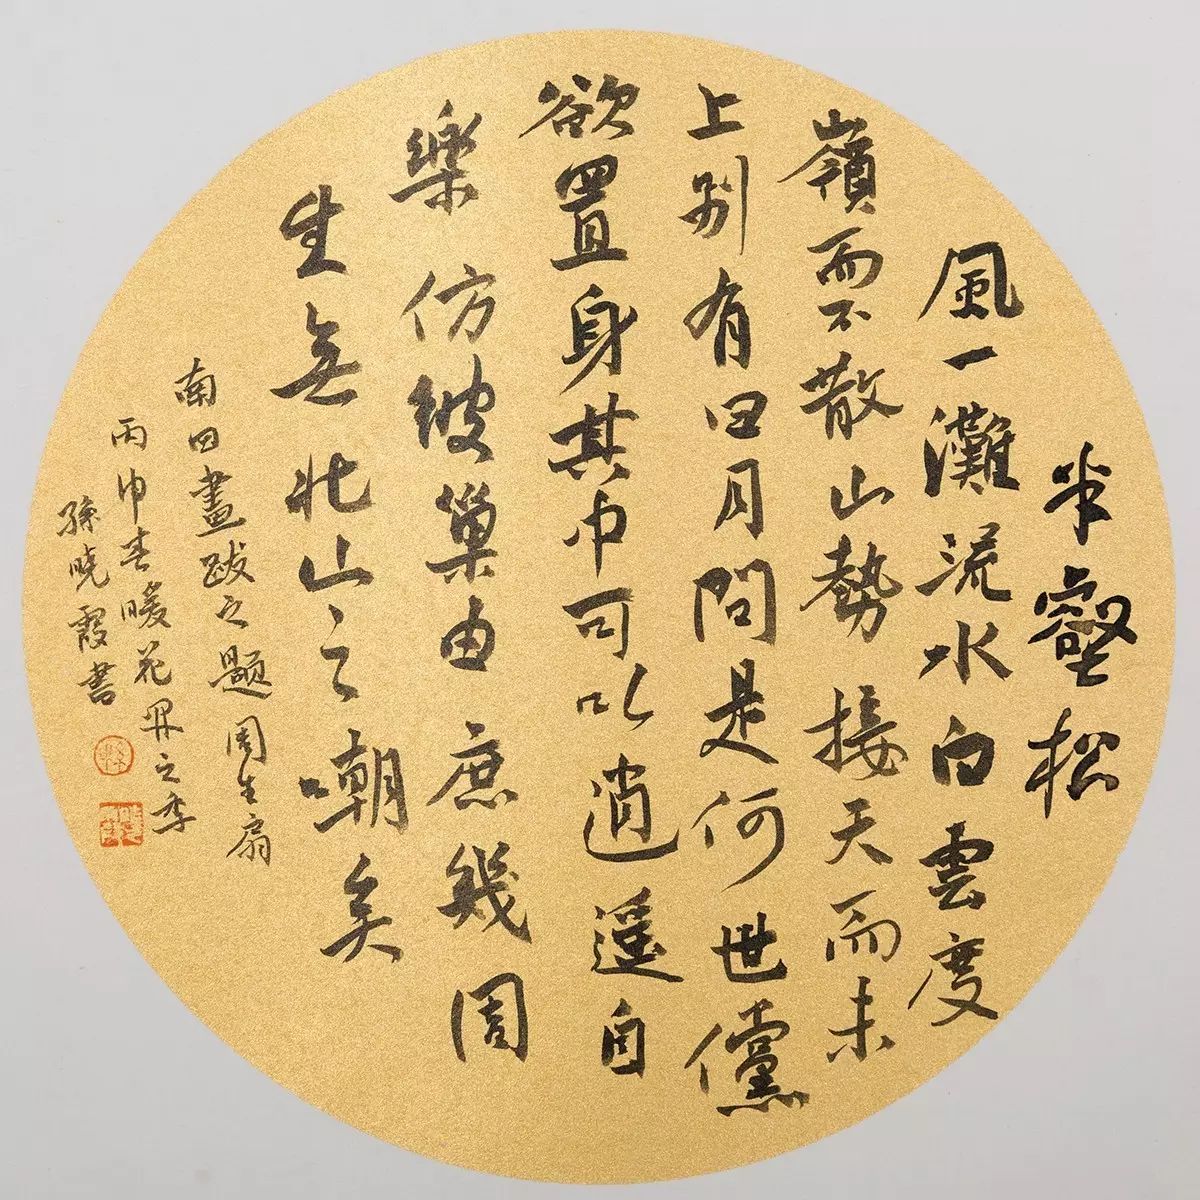 半壑松
風一灘流水白雲度
嶺而不散山勢接天而未
上別有日月問是何世儻
欲置身其巾可以逍遥自
樂仿彼巢由庶幾周
生無北山之嘲矣
南田畫跋之題周生扇
丙申春暖花開之季
孫曉霞書